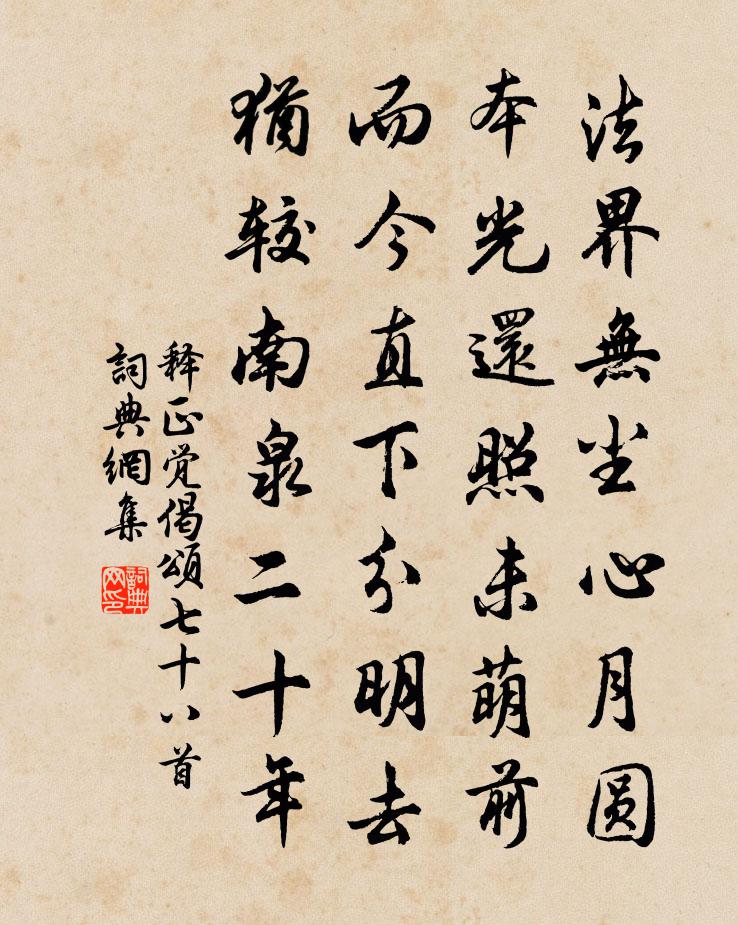 法界無尘心月圆
本光還照未萌前
而今直下分明去
猶较南泉二十年
释正覚偈頌七十八首
詞典網集
詞典网印